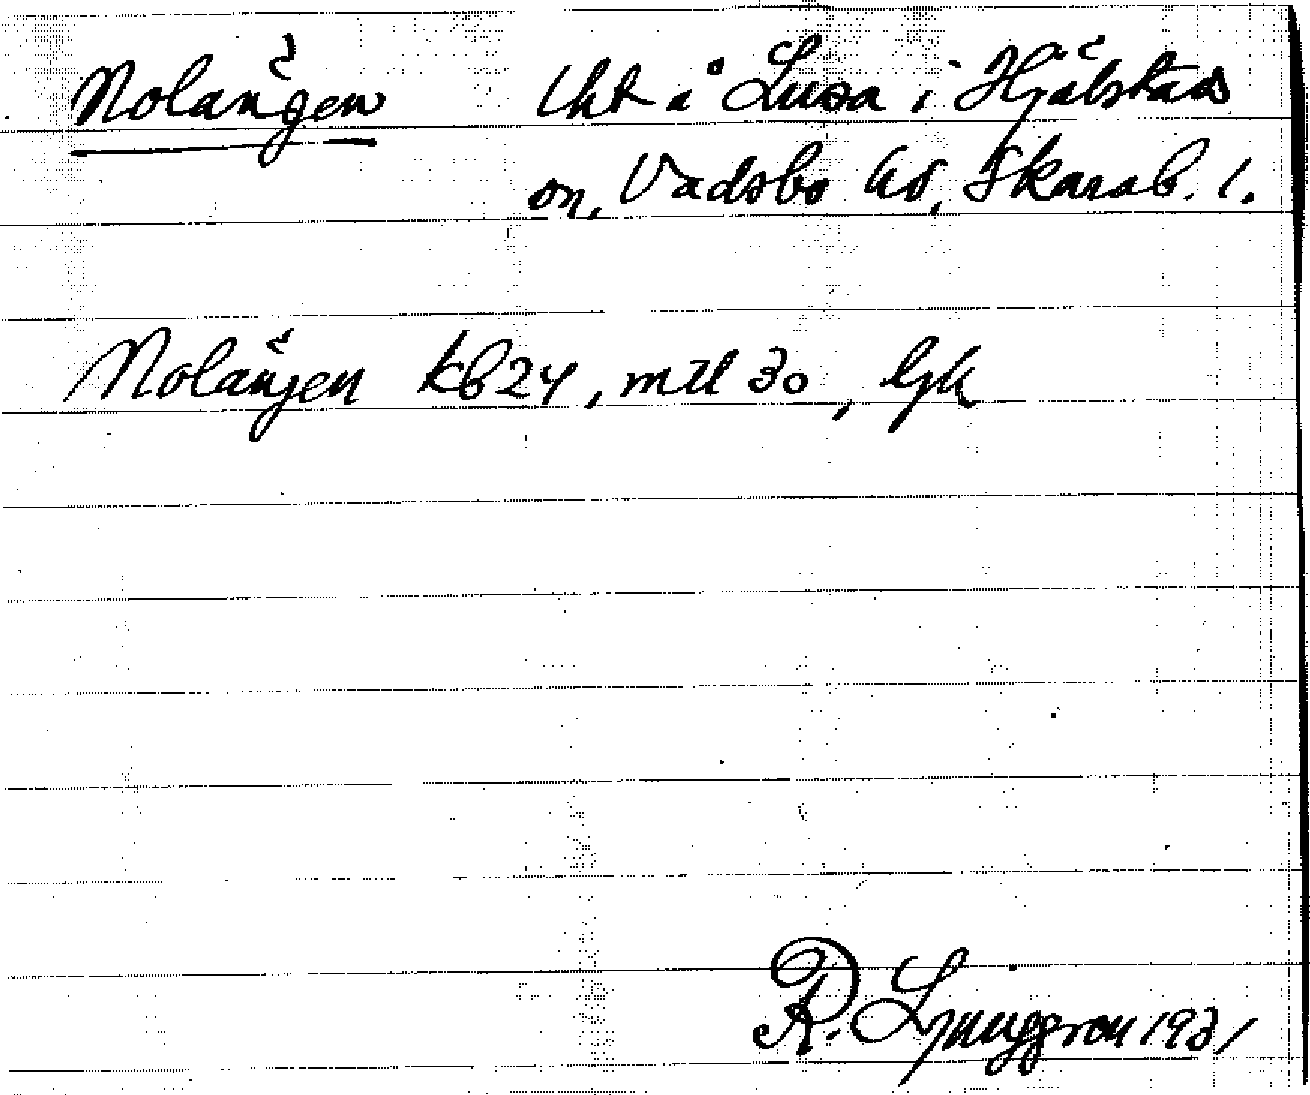 Nolängen lht å Lusa i Hjälstads
sn, Vadsbo hd, Skarab. l.
Nolängen kb 24, mtl 30, Gk
R. Ljunggren 1931